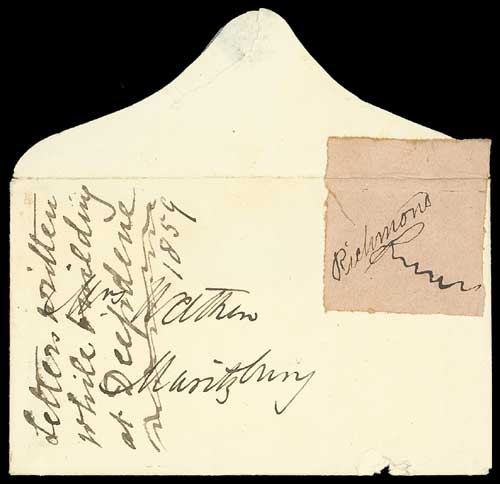 Letters written
while building
at Deepdene
1859
Mrs Wathen
Maritzburg
Richmond